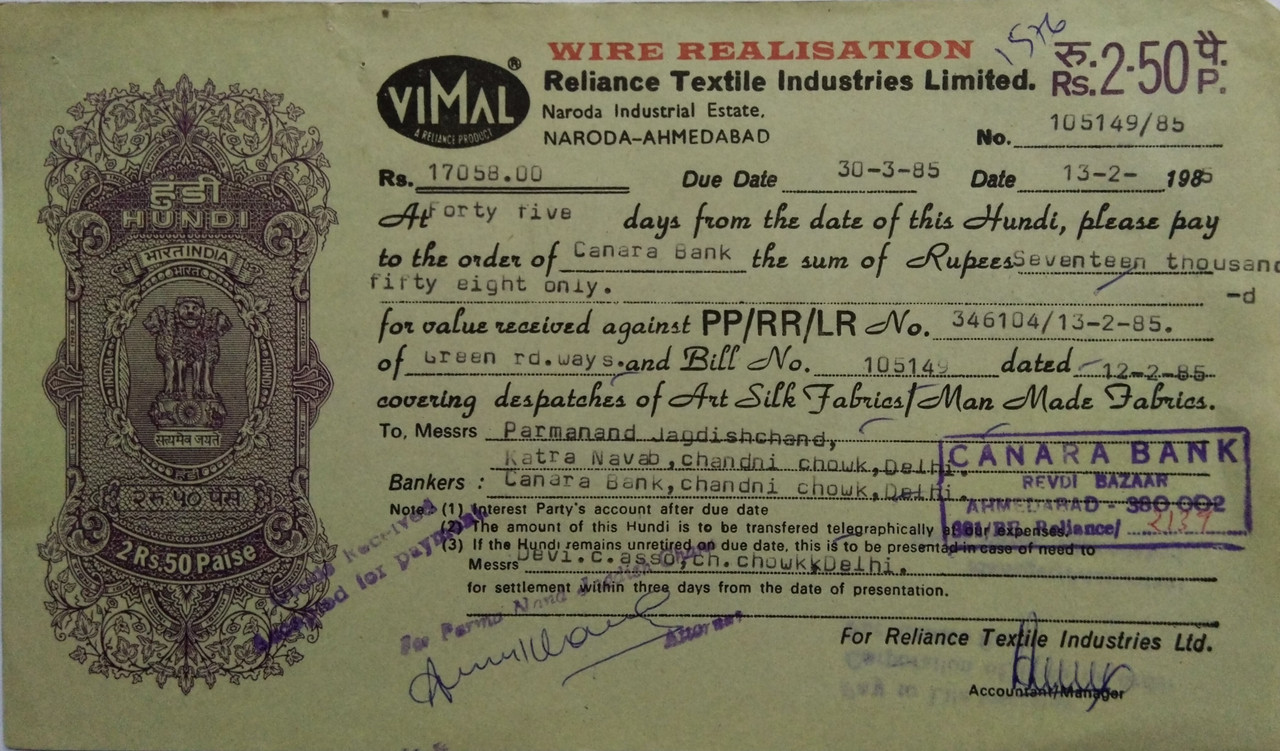 WIRE REALISATION
1576
VIMAL ®
A RELIANCE PRODUCT
Reliance Textile Industries Limited.
रु. 2-50 पै.
Rs. P.
Naroda Industrial Estate,
NARODA-AHMEDABAD
No. 105149/85
Rs. 17058.00 Due Date 30-3-85 Date 13-2- 1985
At Forty five days from the date of this Hundi, please pay
to the order of Canara Bank the sum of Rupees Seventeen thousan
-d
fifty eight only.
for value received against PP/RR/LR No. 346104/13-2-85.
of Green rd.ways. and Bill No. 105149 dated 12-2-85
covering despatches of Art Silk Fabrics/Man Made Fabrics.
To, Messrs Parmanand Jagdishchand,
Katra Navab,chandni chowk,Delhi.
Bankers : Canara Bank,chandni chowk,Delhi.
Note : (1) Interest Party's account after due date
(2) The amount of this Hundi is to be transfered telegraphically at our expenses.
(3) If the Hundi remains unretired on due date, this is to be presented in case of need to
Messrs Devi.c.asso,ch.chowk,Delhi.
for settlement within three days from the date of presentation.
For Reliance Textile Industries Ltd.
Accountant/Manager
हुंडी
HUNDI
भारत INDIA
भारत
INDIA HUNDI
HUNDI
सत्यमेव जयते
हुंडी
२रु.५० पैसे
2 Rs.50 Paise
CANARA BANK
REVDI BAZAAR
AHMEDABAD - 380 002
Reliance/ 2139
Received
for payment
For Parma Nand
Attorney